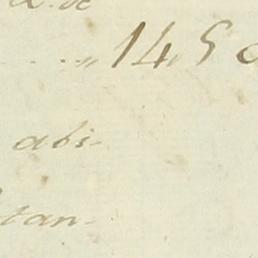 1450
abi-
tan-